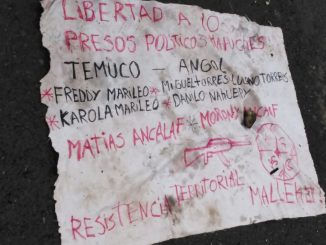 LIBERTAD A LO
PRESOS POLITICOS MAPUCHES
TEMUCO — ANGOL
*FREDDY MARILEO *MIGUEL TORRES LUCIANO TORRES
*KAROLA MARILEO *DANILO NAHUELPI
MATIAS ANCALAF *MORONI ANCALAF
RESISTENCIA TERRITORIAL
MALLEKO